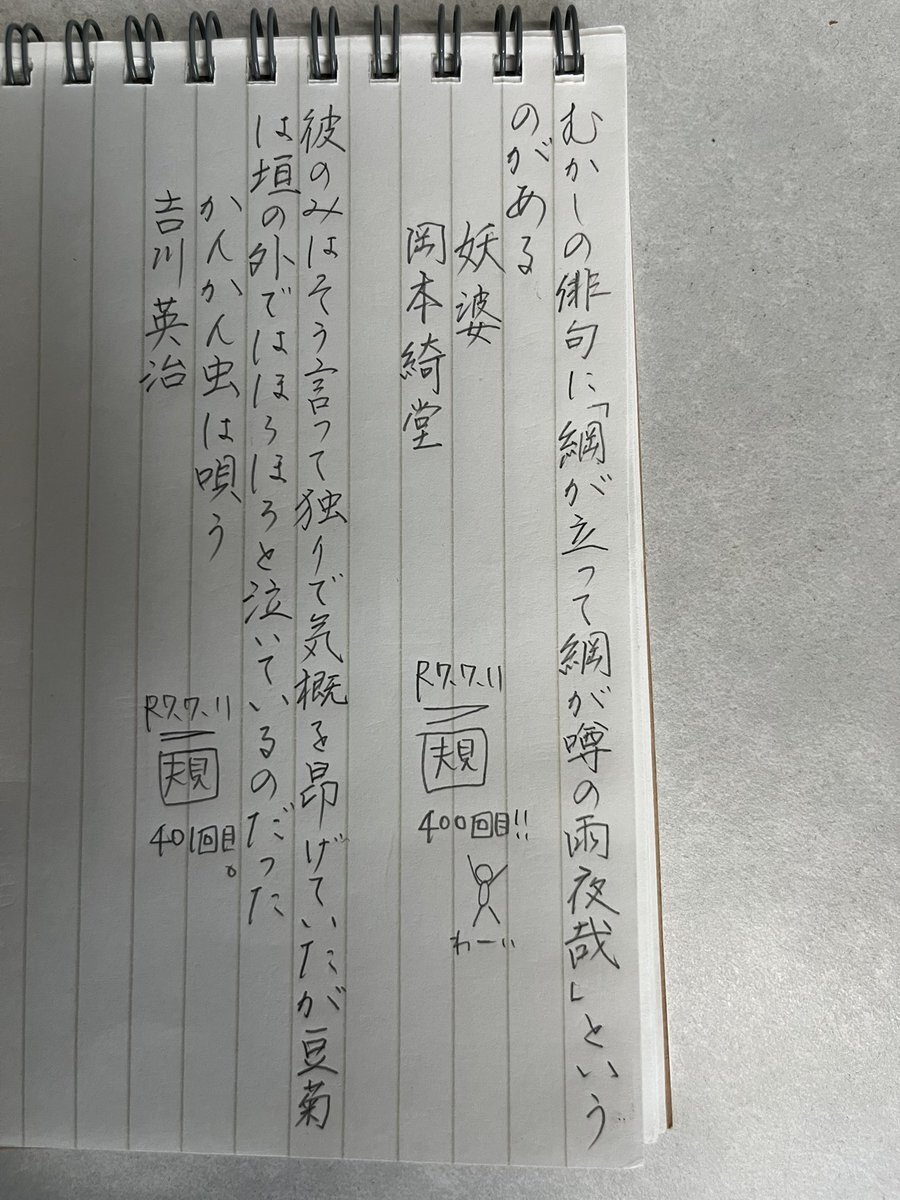 むかしの俳句に「綱が立って綱が噂の雨夜哉」という
のがある
妖婆
岡本綺堂
R7.7.11
規
400回目!!
わーい
彼のみはそう言って独りで気概を昂げていたが豆菊
は垣の外ではほろほろと泣いているのだった
かんかん虫は唄う
吉川英治
R7.7.11
規
401回目。